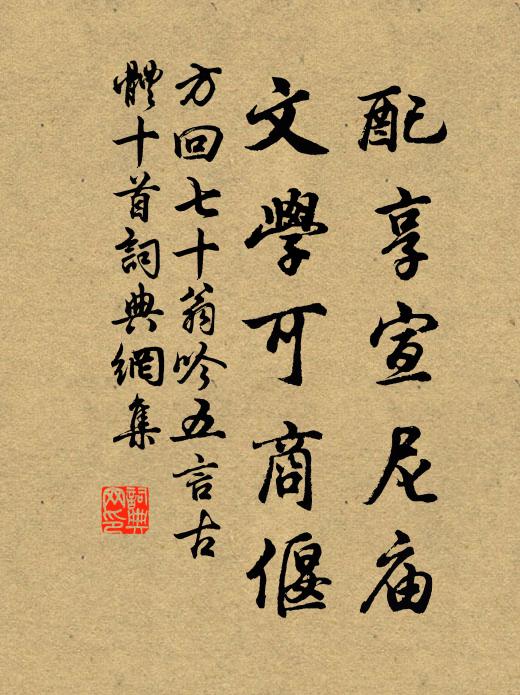 配享宣尼庙
文學可商偃
方回七十翁吟五言古
體十首詞典網集
詞典网印